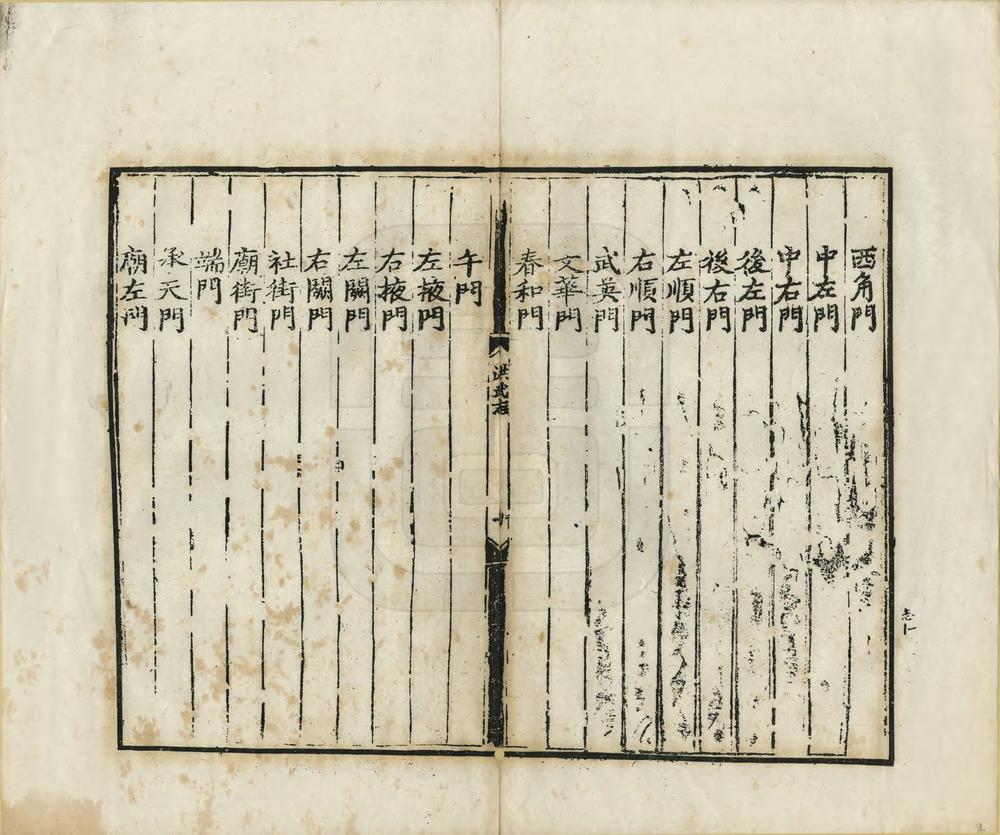 西角門
中左門
中右門
後左門
後右門
左順門
右順門
武英門
文華門
春和門
洪武志
十
午門
左掖門
右掖門
左闕門
右闕門
社街門
廟街門
端門
承天門
廟左門